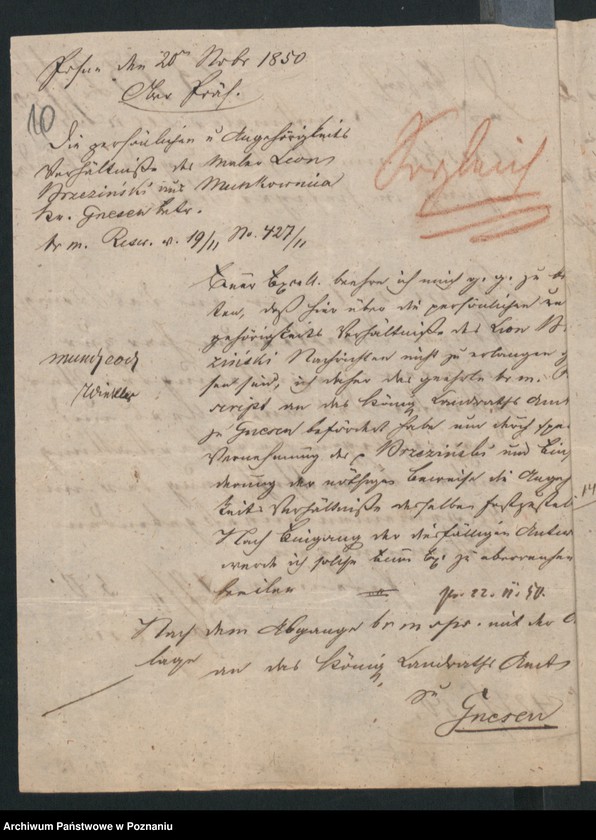 Posen den 20ten Novbr 1850
Ober Präs.
10
Die persönlichen u Angehörigkeits
Verhältniße des Maler Leon
Brzeziński aus Mnichownica
Kr. Gnesen betr.
br m. Rescr. v. 19/11 No. 427/11
Euer Excell. beehre ich mich g. g. zu
ten, daß hier über die persönlichen
gehörigkeits Verhältniße des Leon
ziński Nachrichten nicht zu erlangen
sen sind, ich daher das geehrte br. m.
script an das König Landraths Amt
zu Gnesen befördert habe um durch
Vernehmung des p Brzeziński und
derung der nöthigen Beweise die
keits Verhältniße desselben
Nach Eingang der diesfälligen
werde ich solche Euer Ex. zu überreichen
pr. 22. 11. 50.
mund
Winkler
14
Nach dem Abgange br m mit der
lage
an das König Landraths Amt
zu
Gnesen
Archiwum Państwowe w Poznaniu